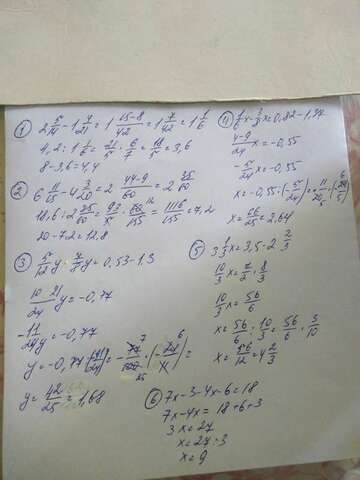 ① 2 5/14 - 1 4/21 = 1 15-8/42 = 1 7/42 = 1 1/6
4,2 : 1 1/6 = 21/5 · 6/7 = 18/5 = 3,6
8-3,6=4,4
② 6 11/15 - 4 3/20 = 2 44-9/60 = 2 35/60
18,6 : 2 35/60 = 93/5 · 60/155 = 1116/155 = 7,2
20-7,2=12,8
③ 5/12 y - 7/8 y = 0,53-1,3
10-21/24 y = -0,77
-11/24 y = -0,77
y = 42/25 = 1,68
④ 1/6 x - 3/8 x = 0,82-1,37
4-9/24 x = -0,55
-5/24 x = -0,55
x = 66/25 = 2,64
⑤ 3 1/3 x = 3,5 · 2 2/3
10/3 x = 7/2 · 8/3
10/3 x = 56/6
x = 56/6 : 10/3 = 56/6 · 3/10
⑥ 7x-3-4x-6=18
7x-4x = 18+6+3
3x=27
x=27:3
x=9